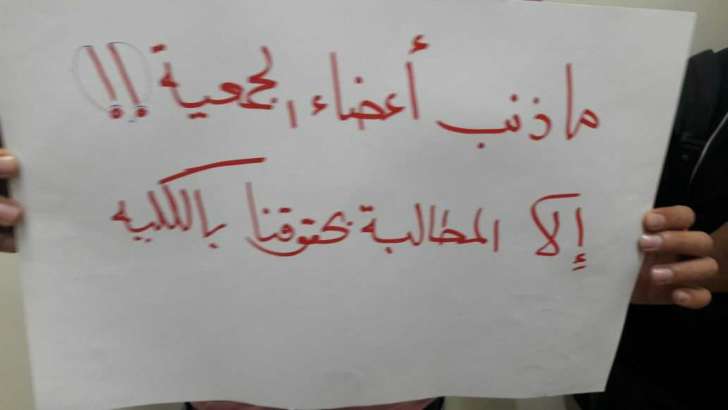 ما ذنب أعضاء الجمعية !!
إلا المطالبة بحقوقنا بالكليه